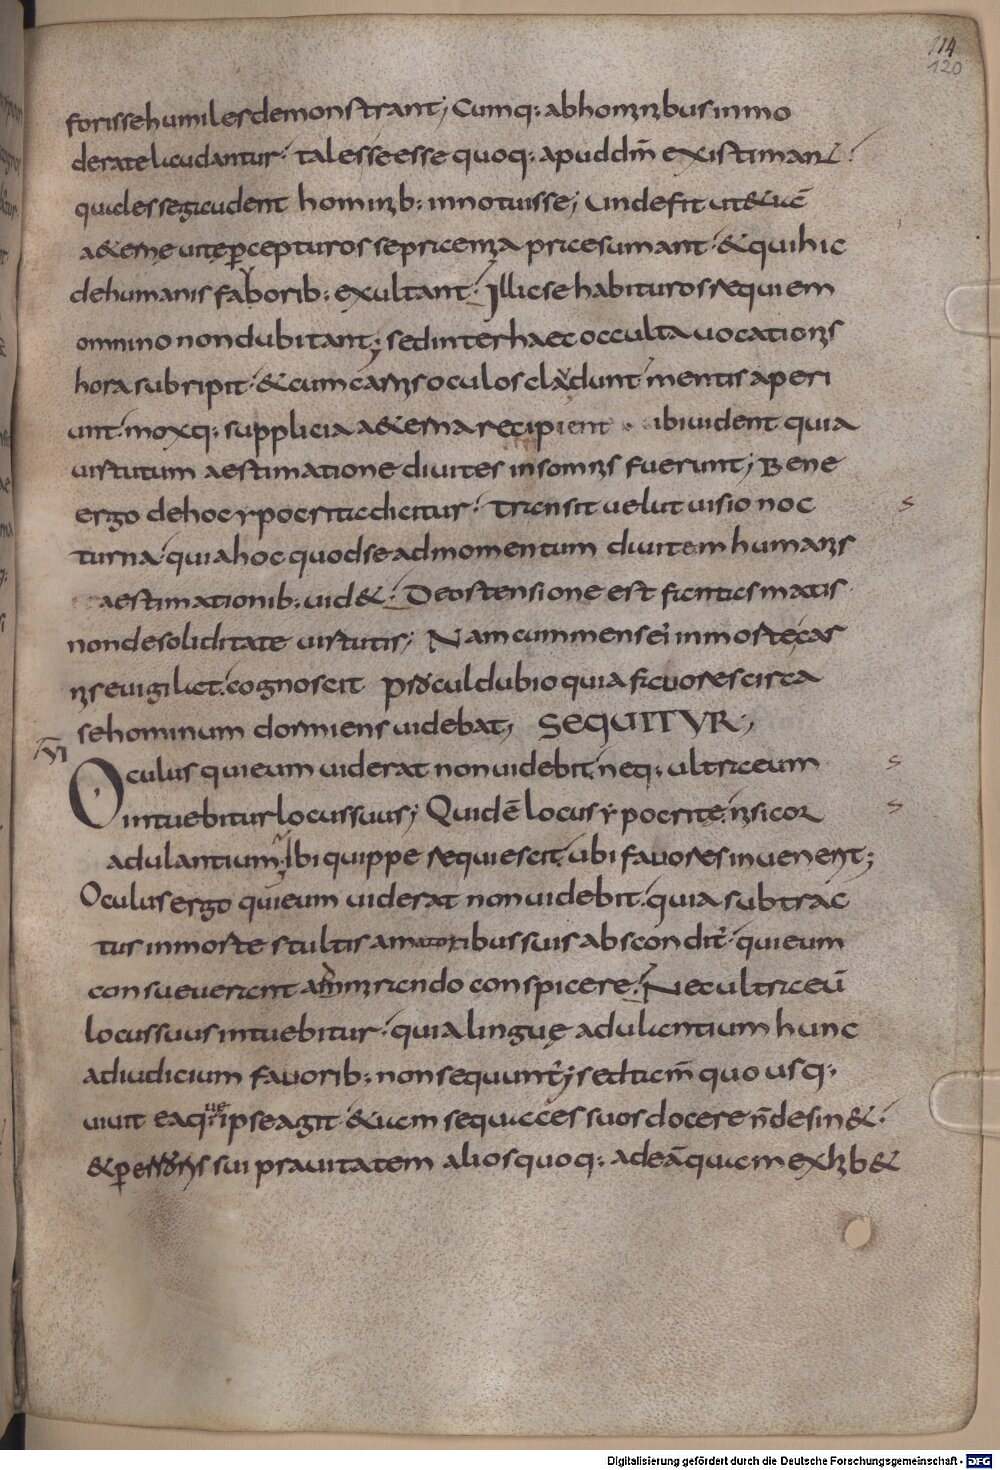 114
120
forissehumilesdemonstrant; Cumq: abhominibus inmo
deratelaudantur· talesseesse quoq: apuddm̄ existimant·
qualessegaudent hominib: innotuisse; Undefit ut&uē
a&erne uitę p̱cepturos sepraemia praesumant· &quihic
dehumanis favorib: exultant· Illicsehabiturosrequiem
omnino nondubitant; sedinterhaec occulta uocationis
hora subripit· &cumcarnis oculos claudunt mentis aperi
unt· moxq: supplicia a&erna recipient · ibiuident quia
uirtutum aestimatione diuites insomnis fuerunt; Bene
ergo dehoc ypocrita dicitur· Transit uelut uisio noc
turna· quiahoc quodse admomentum diuitem humanis
aestimationib: uid&· Deostensione est fantasmatis
nondesoliditate uirtutis; Nam cummensei inmortecar
nis euigilat· cognoscit proculdubio quia fauores circa
sehominum dormiens uidebat; SEQUITVR;
VI
Oculus quieum uiderat nonuidebit· neq: ultraeum
intuebitur locussuus; Quidē locus ypocritę· nisi cor
adulantium· Ibi quippe requiescit· ubi fauores inuenerit;
Oculus ergo quieum uiderat nonuidebit· quia subtrac
tus inmorte stultis amatoribus suis absconditur· quieum
consueuerant ammirando conspicere· Necultraeū
locussuus intuebitur· quia linguę adulantium hunc
adiudicium fauorib: nonsequuntur; sedtam̄ quousq:
uiuit eaquę ipseagit &iam sequaces suos docere ñ desin&·
&p̱ errores sui prauitatem alios quoq: adeāquam exhib&
Digitalisierung gefördert durch die Deutsche Forschungsgemeinschaft - DFG